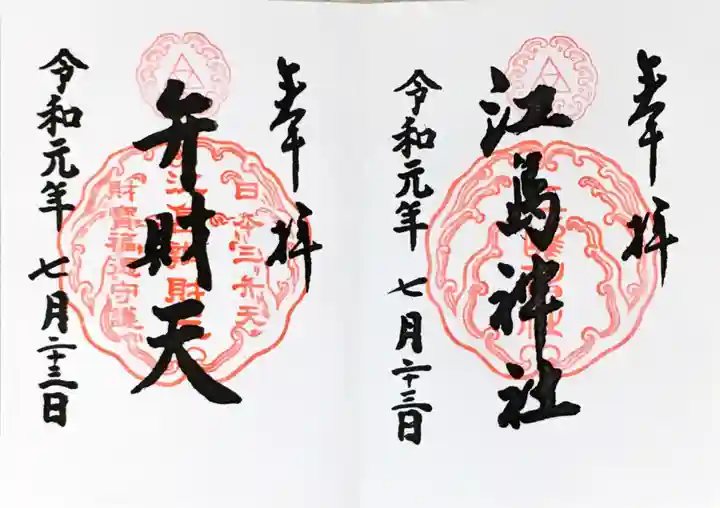 奉拝
江島神社
令和元年七月二十三日
奉拝
弁財天
日本三弁天
財寶福徳守護
令和元年七月二十三日